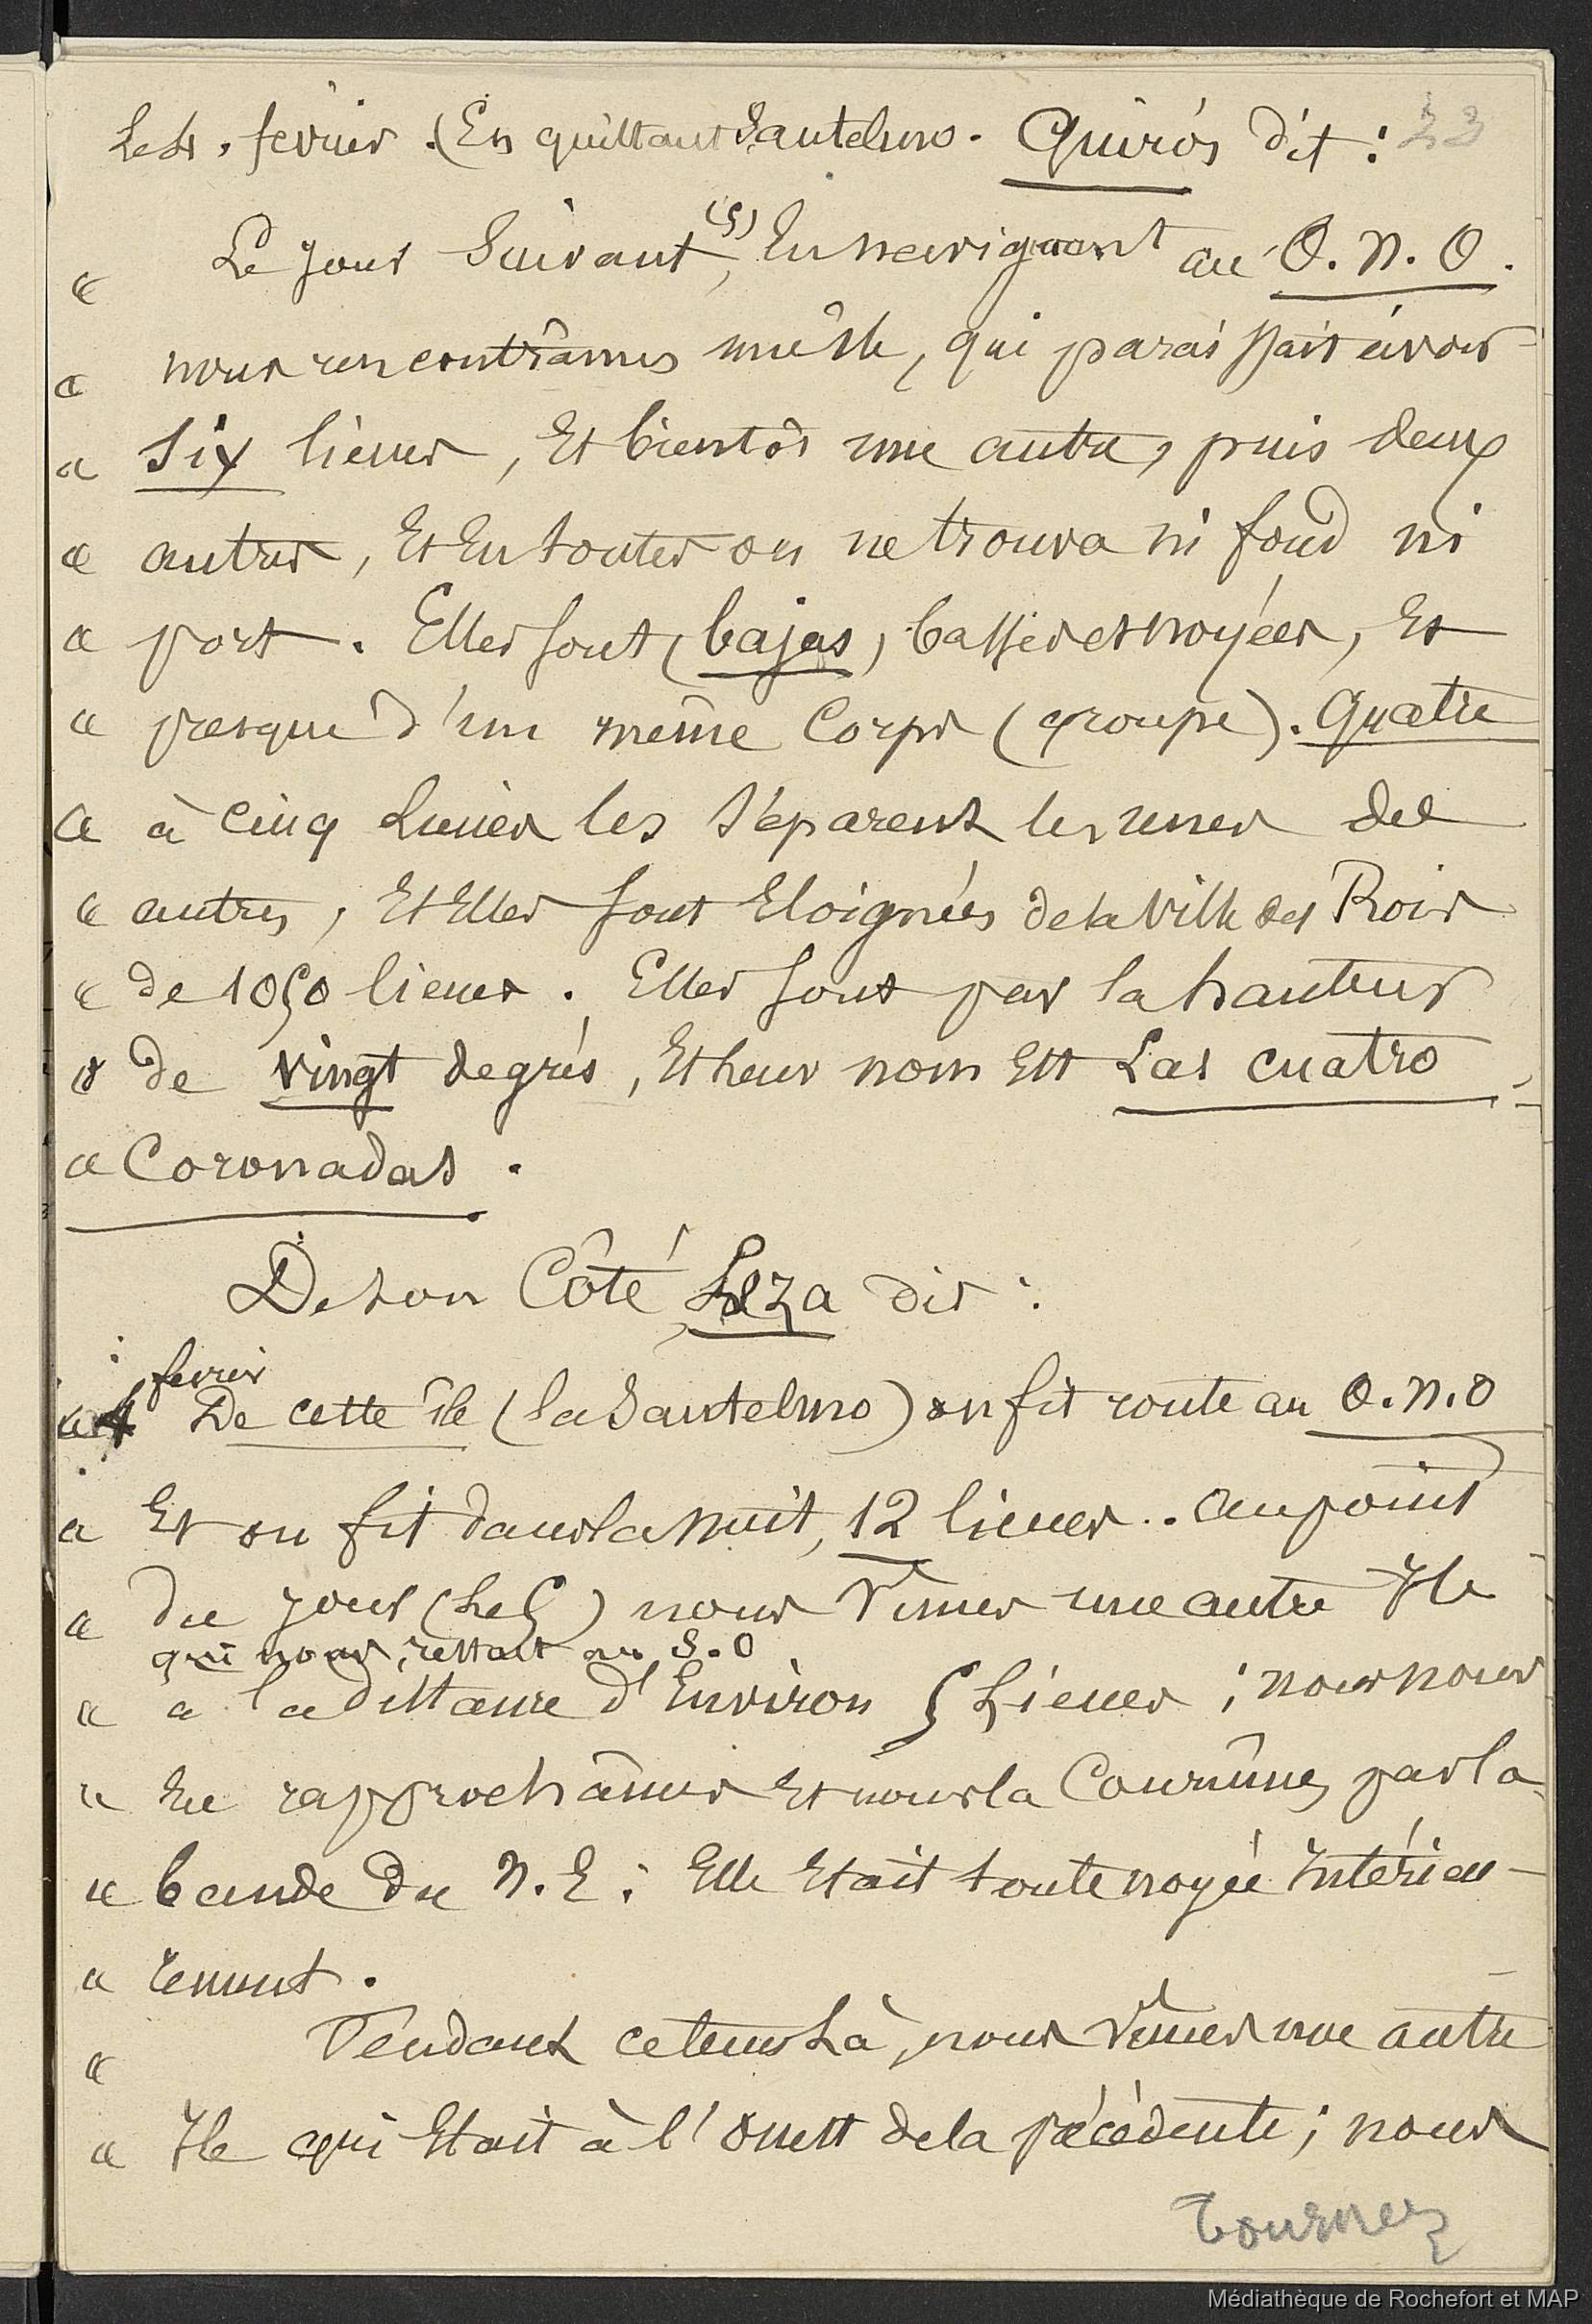 Le 4. février. (En quittant Santelmo. Quirós dit : 23
« Le jour Suivant, (5) En navigant au O. N. O.
« nous rencontrâmes une île, qui paraissait avoir
« Six lieues, Et bientôt une autre, puis deux
« autres, Et En toutes on ne trouva ni fond ni
« port. Elles sont (bajas) basses et noyées, Et
« presque d'un même Corps (groupe). Quatre
« à cinq Lieues les séparent les unes des
« autres, Et Elles sont Eloignées de la Ville des Rois
« de 1050 lieues. Elles sont par la hauteur
« de vingt degrés, Et leur nom Est Las cuatro
« Coronadas.
De son Côté Leza dit :
février
« 4 De cette île (la Santelmo) on fit route au O.N.O
« Et on fit dans la nuit, 12 lieues.. au point
« du jour (Le 5) nous Vîmes une autre Ile
qui nous restait au S.O
« à la distance d'Environ 5 Lieues ; nous nous
« En rapprochâmes Et nous la Courûmes par la
« bande du N.E : Elle Etait toute noyée Intérieu-
« rement.
« Pendant ce tems Là, nous Vîmes une autre
« Ile qui Etait à l'Ouest de la précédente ; nous
Tournez
Médiathèque de Rochefort et MAP